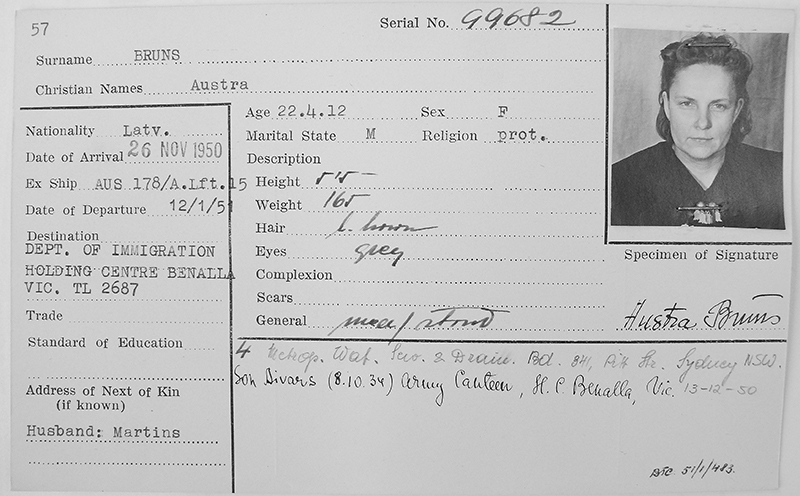 57
Serial No. 99682
Surname BRUNS
Christian Names Austra
Nationality Latv.
Date of Arrival 26 NOV 1950
Ex Ship AUS 178/A.Lft.15
Date of Departure 12/1/51
Destination
DEPT. OF IMMIGRATION
HOLDING CENTRE BENALLA
VIC. TL 2687
Trade
Standard of Education
Address of Next of Kin
(if known)
Husband: Martins
Age 22.4.12 Sex F
Marital State M Religion prot.
Description
Height 5'5"
Weight 165
Hair l. brown
Eyes grey
Complexion
Scars
General stout
Specimen of Signature
Austra Bruns
4 Metrop. Wat. Sew. & Drain. Bd. 341, Pitt Str. Sydney NSW.
Son Divars (8.10.34) Army Canteen, H.C. Benalla, Vic. 13-12-50
51/1/483.